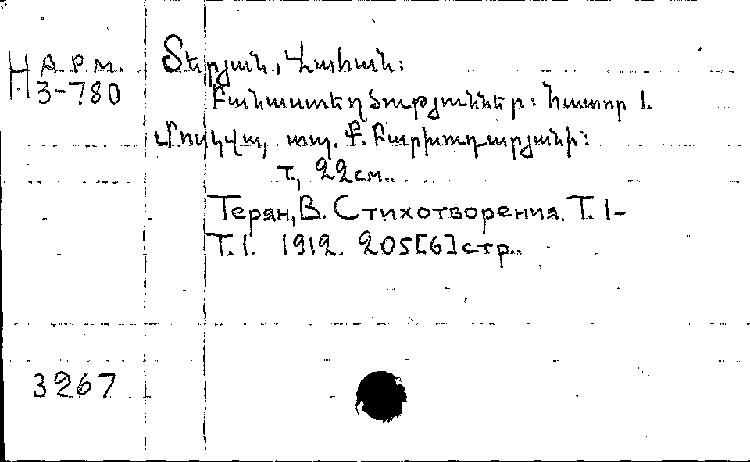 Н АРМ. 3-780
Տերյան, Վահան:
Բանաստեղծություններ: Հատոր 1.
Մոսկվա, տպ. Ք. Բարխուդարյանի:
т., 22см.
Терян, В. Стихотворения. Т. 1-
Т. 1. 1912. 205[6]стр..
3267